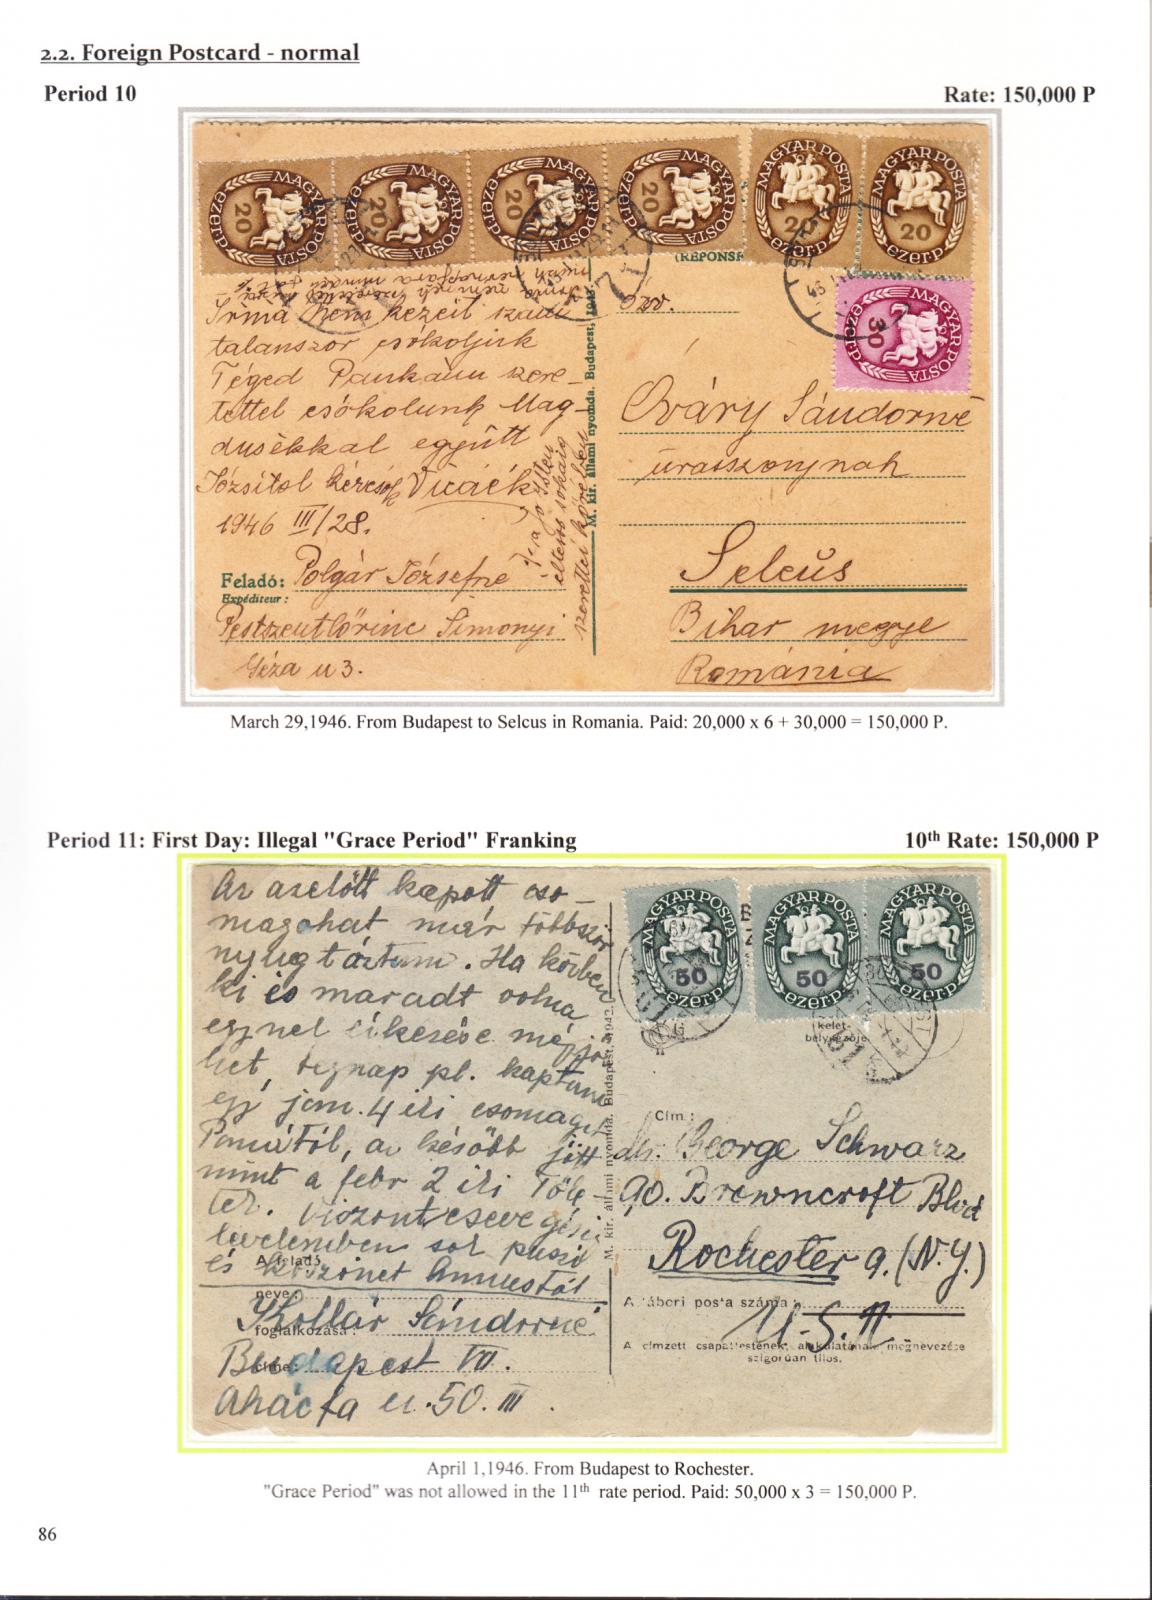 2.2. Foreign Postcard - normal
Period 10
Rate: 150,000 P
MAGYAR POSTA 20 ezerP
MAGYAR POSTA 20 ezerP
MAGYAR POSTA 20 ezerP
MAGYAR POSTA 20 ezerP
MAGYAR POSTA 20 ezerP
MAGYAR POSTA 20 ezerP
MAGYAR POSTA 30 ezerP
(RÉPONSE
Irma néni kezeit szám
talanszor csókoljuk
Téged Pankám szere-
tettel csókolunk Mag-
dusékkal együtt
Józsitol kézcsók
1946 III/28.
Feladó: Polgár Józsefné
Expéditeur:
Pestszentlőrinc Simonyi
Géza u 3.
M. kir. állami nyomda. Budapest, 1943.
özv.
Óváry Sándorné
úrasszonynak
Selcüs
Bihar megye
Románia
March 29,1946. From Budapest to Selcus in Romania. Paid: 20,000 x 6 + 30,000 = 150,000 P.
Period 11: First Day: Illegal "Grace Period" Franking
10th Rate: 150,000 P
Az azelőtt kapott cso-
magokat már többször
nyugtáztam. Ha közben
ki is maradt volna
egynek érkezése még jö
het, tegnap pl. kaptunk
egy jan. 4 iki csomagot
, az később jött
mint a febr 2 iki Tőle-
tek. Viszont
levelemben sok puszi
és köszönet Annustól
A feladó
neve: Kollár Sándorné
foglalkozása:
címe: Budapest VII.
Akácfa u. 50. III.
M. kir. állami nyomda. Budapest, 1942.
MAGYAR POSTA 50 ezerP
MAGYAR POSTA 50 ezerP
MAGYAR POSTA 50 ezerP
kelet-
bélyegzője
Cím:
dr. George Schwarz
90. Browncroft Blvd
Rochester 9. (N.Y.)
A tábori posta száma:
U.S.A
A címzett csapattestének, alakulatának megnevezése
szigorúan tilos.
April 1,1946. From Budapest to Rochester.
"Grace Period" was not allowed in the 11th rate period. Paid: 50,000 x 3 = 150,000 P.
86